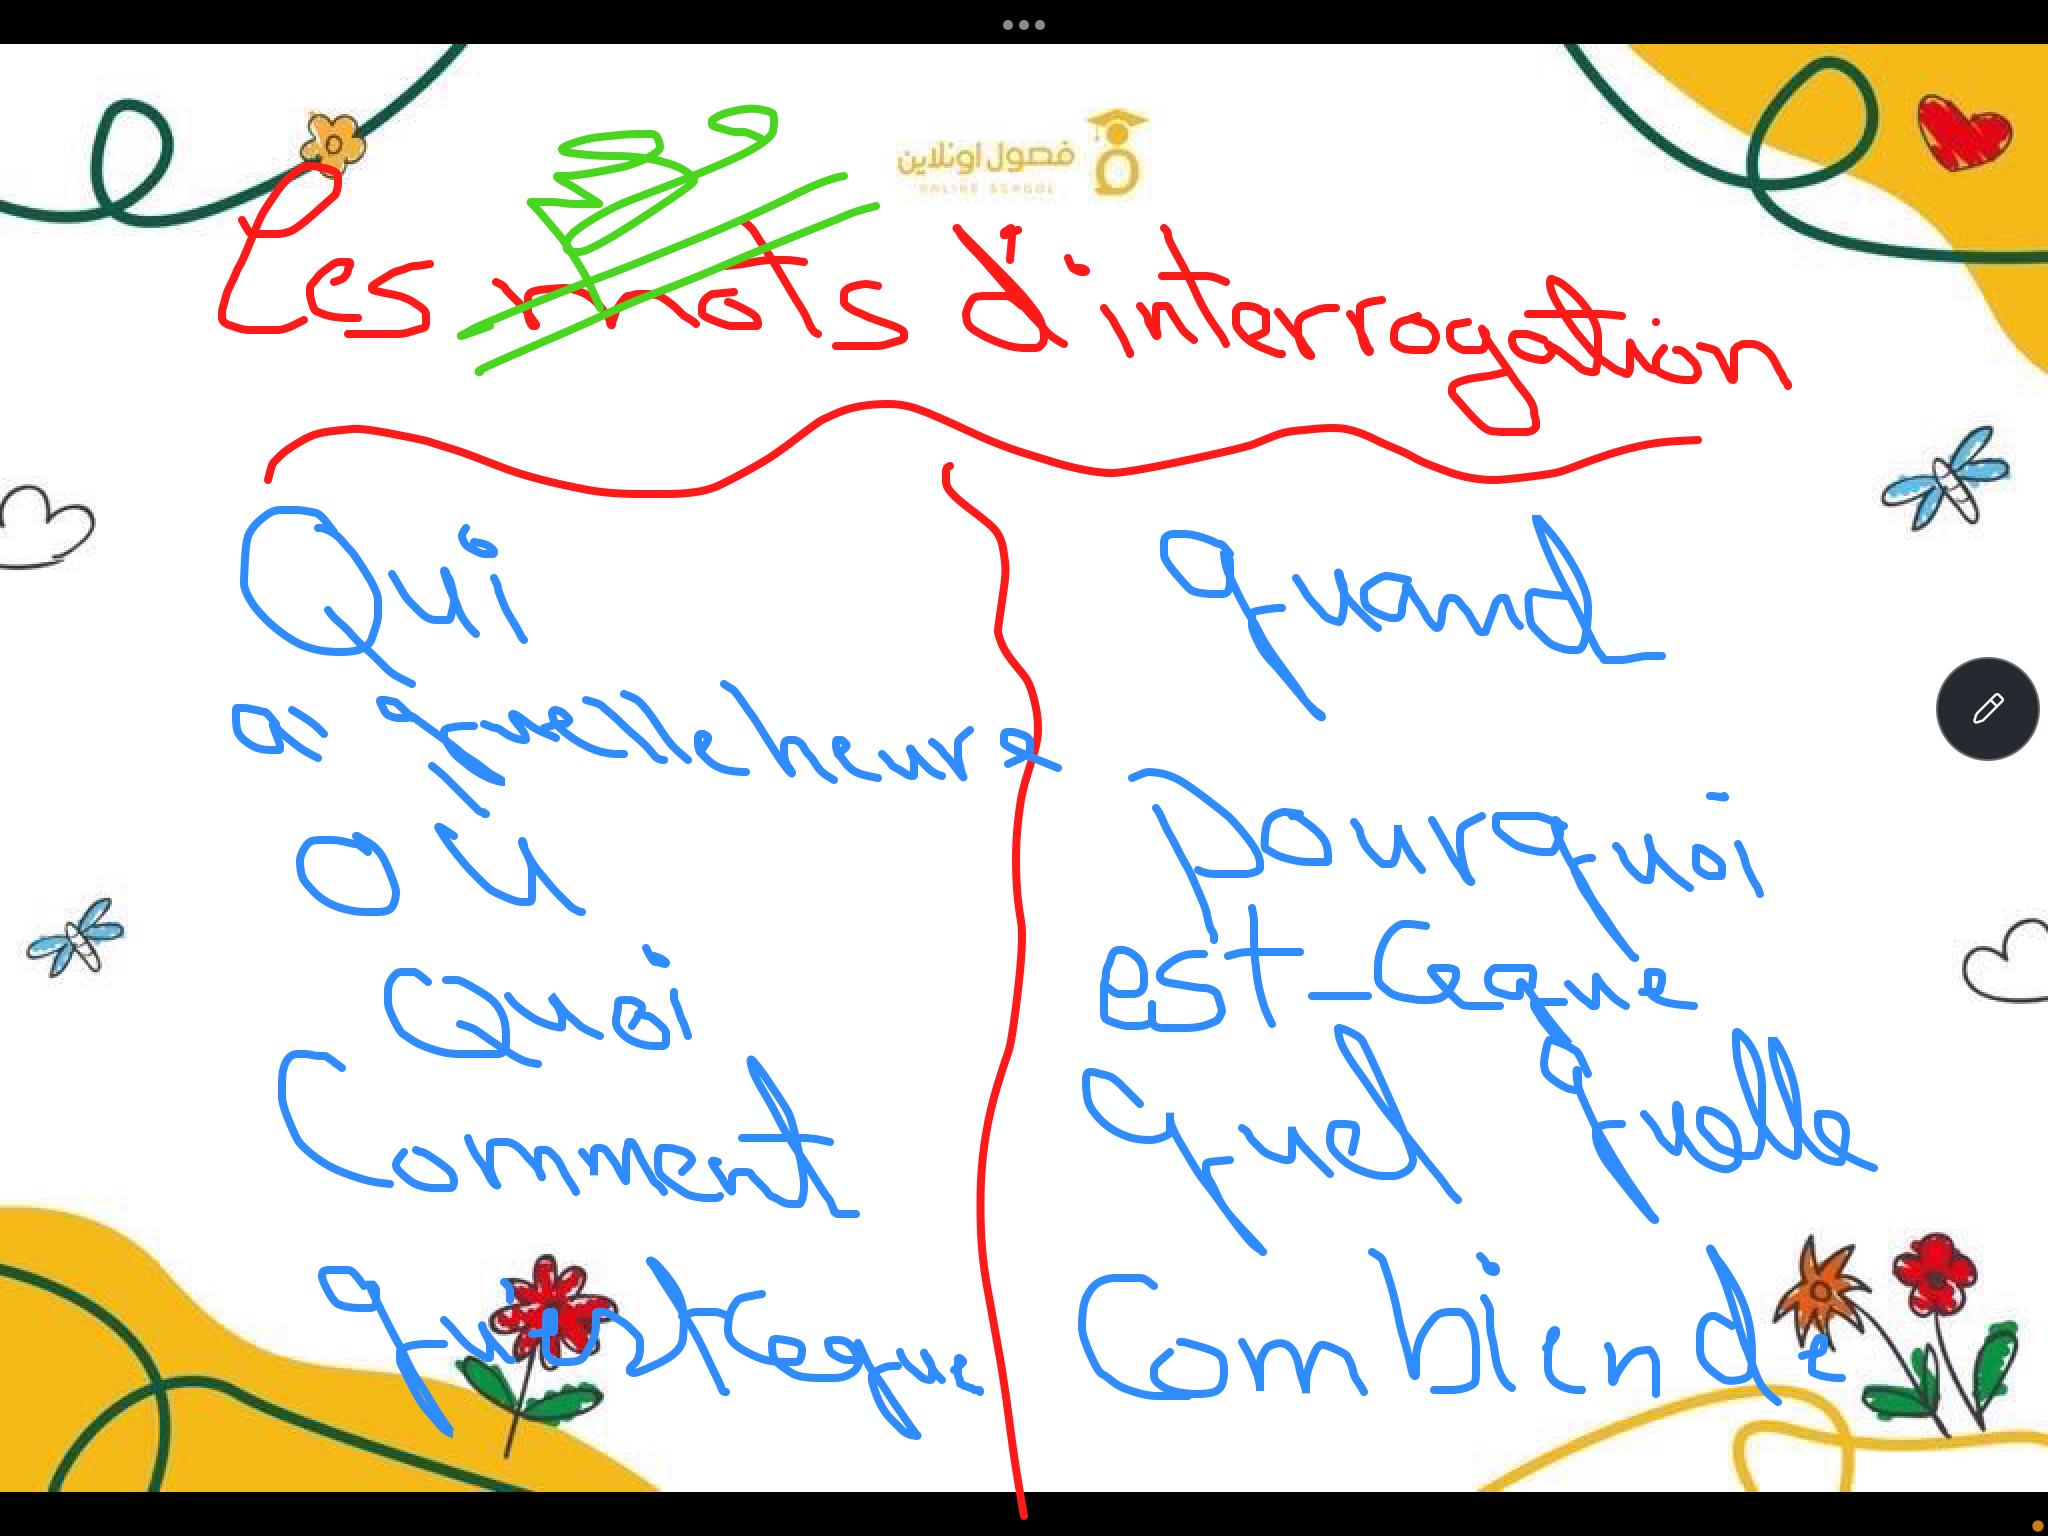 فصول اونلاين
ONLINE SCHOOL
Les mots d'interrogation
Qui
à quelle heure
Où
Quoi
Comment
qu'est ce que
quand
pourquoi
est-ce que
quel quelle
Combien de